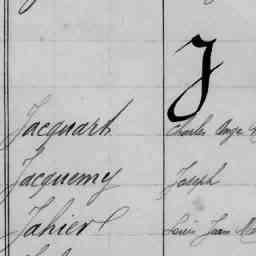 J
Jacquart Charles Ange
Jacquemy Joseph
Jahier Louis Jean